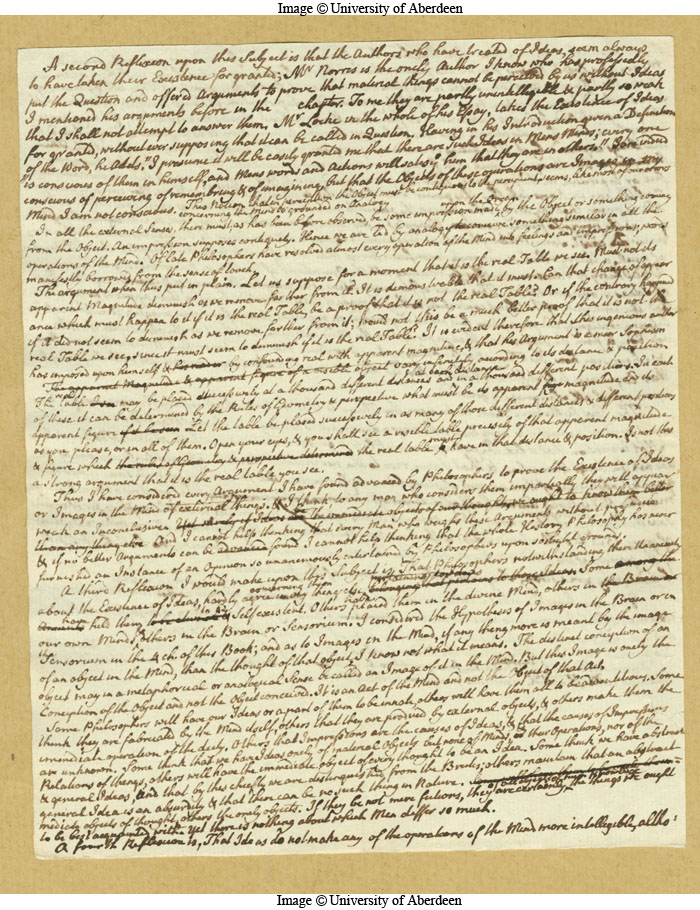 Image © University of Aberdeen
A second Reflexion upon this Subject is that the Authors who have treated of Ideas, seem always
to have taken their Existence for granted; Mr Norris is the onely Author I know who has professedly
put the Question and offered Arguments to prove that material things cannot be perceived by us without Ideas
I mentioned his arguments before in the chapter. To me they are partly unintelligible & partly so weak
that I shall not attempt to answer them. Mr Locke in the whole of his Essay, takes the Existence of Ideas
for granted, without ever supposing that it can be called in Question. Having in his Introduction given a Definition
of the Word, he adds, "I presume it will be easily granted me that there are such Ideas in Mens Minds; every one
is conscious of them in himself, and Mens words and Actions will satisfy him that they are in others." I am indeed
conscious of perceiving of remembring & of imagining, but that the Objects of these operations are Images in my
Mind I am not conscious. This Notion that in perception the Object must be contiguous to the percipient, seems, like most of our errors
concerning the Mind to be grounded on Analogy
In all the external Senses, there must, as has been before observed, be some impression made upon the Organ by the Object or something coming
from the Object. An impression supposes contiguity. Hence we are led by analogy to conceive something similar in all the
operations of the Mind. Of late Philosophers have resolved almost every operation of the Mind into feelings and impressions, words
manifestly borrowed from the sense of touch.
The argument when thus put is plain. Let us suppose for a moment that it is the real Table we see. Must not its
apparent Magnitude diminish as we remove farther from it. It is demonstrable that it must. Can that change of appear
ance which must happen to it if it is the real Table, be a proof that it is not the real Table? Or if the contrary happened
if it did not seem to diminish as we remove farther from it; would not this be a much better proof that it is not the
real Table we see, since it must seem to diminish if it is the real Table? It is evident therefore that this ingenious author
has imposed upon himself by confounding real with apparent magnitude, & that his Argument is a mere Sophism
The apparent Magnitude & apparent figure of a visible object vary infinitely, according to its distance & position
The real Table may be placed successively at a thousand different distances and in a thousand different positions. In each
of these it can be determined by the Rules of Geometry & perspective what must be its apparent magnitude and its
apparent figure. Let the table be placed successively in as many of those different distances & different positions
as you please, or in all of them. Open your eyes, & you shall see a visible table precisely of that apparent magnitude
& figure which the real table must have in that distance & position. Is not this
a strong argument that it is the real table you see.
Thus I have considered every Argument I have found advanced by Philosophers to prove the Existence of Ideas
or Images in the Mind of external things. & I think to any man who considers them impartially they will appear
weak and Inconclusive.
And I cannot help thinking that every Man who weighs these Arguments without prejudice
& if no better Arguments can be found I cannot help thinking that the whole History of Philosophy has never
furnished an Instance of an Opinion so unanimously entertained by Philosophers upon so slight grounds.
A third Reflexion I would make upon this Subject is That Philosophers notwithstanding their Unanimity
about the Existence of Ideas, hardly agree in any thing else concerning them. Some
have held them to be Self existent. Others placed them in the divine Mind, others in
our own Mind, others in the Brain or Sensorium. I considered the Hypotheses of Images in the Brain or in
the Sensorium in the 4 ch. of this Book; and as to Images in the Mind, if any thing more is meant by the image
of an object in the Mind, than the thought of that object I know not what it means. The distinct conception of an
object may in a metaphorical or analogical Sense be called an Image of it in the Mind. But this Image is onely the
Conception of the Object and not the Object conceived. It is an Act of the Mind and not the Object of that Act.
Some Philosophers will have our Ideas or a part of them to be innate, others will have them all to be adventitious. Some
think they are fabricated by the Mind itself, others that they are produced by external objects, & others make them the
immediate operation of the deity. Others that Impressions are the causes of Ideas, & that the causes of Impressions
are unknown. Some think that we have Ideas onely of material Objects but none of Minds of their Operations, nor of the
Relations of things, others will have the immediate object of every thought to be an Idea. Some think we have abstract
& general Ideas, and that by this chiefly we are distinguished from the Brutes; others maintain that an abstract
general Idea is an absurdity & that there can be no such thing in Nature.
mediate objects of thought, others the onely objects. If they be not mere fictions, they are certainly the things we ought
to be best acquainted with: yet there is nothing about which Men differ so much.
A fourth Reflexion is, That Ideas do not make any of the operations of the Mind more intelligible, altho
Image © University of Aberdeen